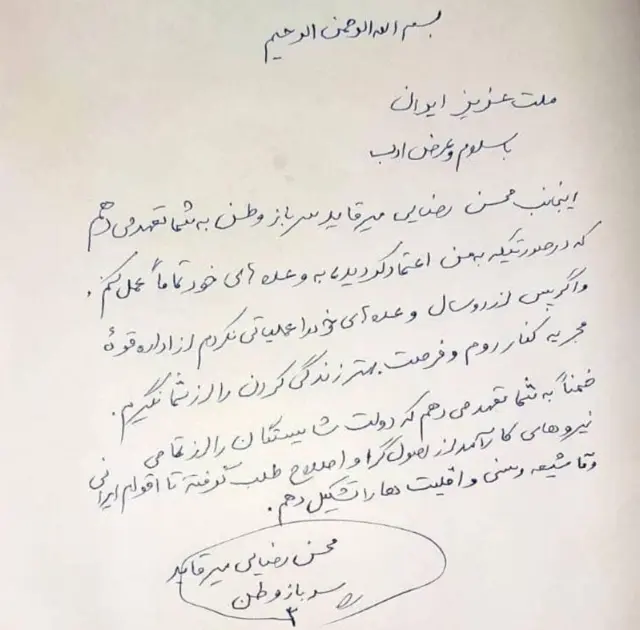 بسم الله الرحمن الرحیم
ملت عزیز ایران
با سلام و عرض ادب
اینجانب محسن رضایی میرقاید سرباز وطن به شما تعهد می دهم
که در صورتیکه به من اعتماد کردید، به وعده های خود تماماً عمل کنم.
و اگر پس از دو سال وعده های خود را عملیاتی نکردم از اداره قوهٔ
مجریه کنار روم و فرصت بهتر زندگی کردن را از شما نگیرم.
ضمناً به شما تعهد می دهم که دولت شایستگان را از تمامی
نیروهای کارآمد از اصولگرا و اصلاح طلب گرفته تا اقوام ایرانی
و تا شیعه و سنی و اقلیت ها را تشکیل دهم.
محسن رضایی میرقاید
سرباز وطن